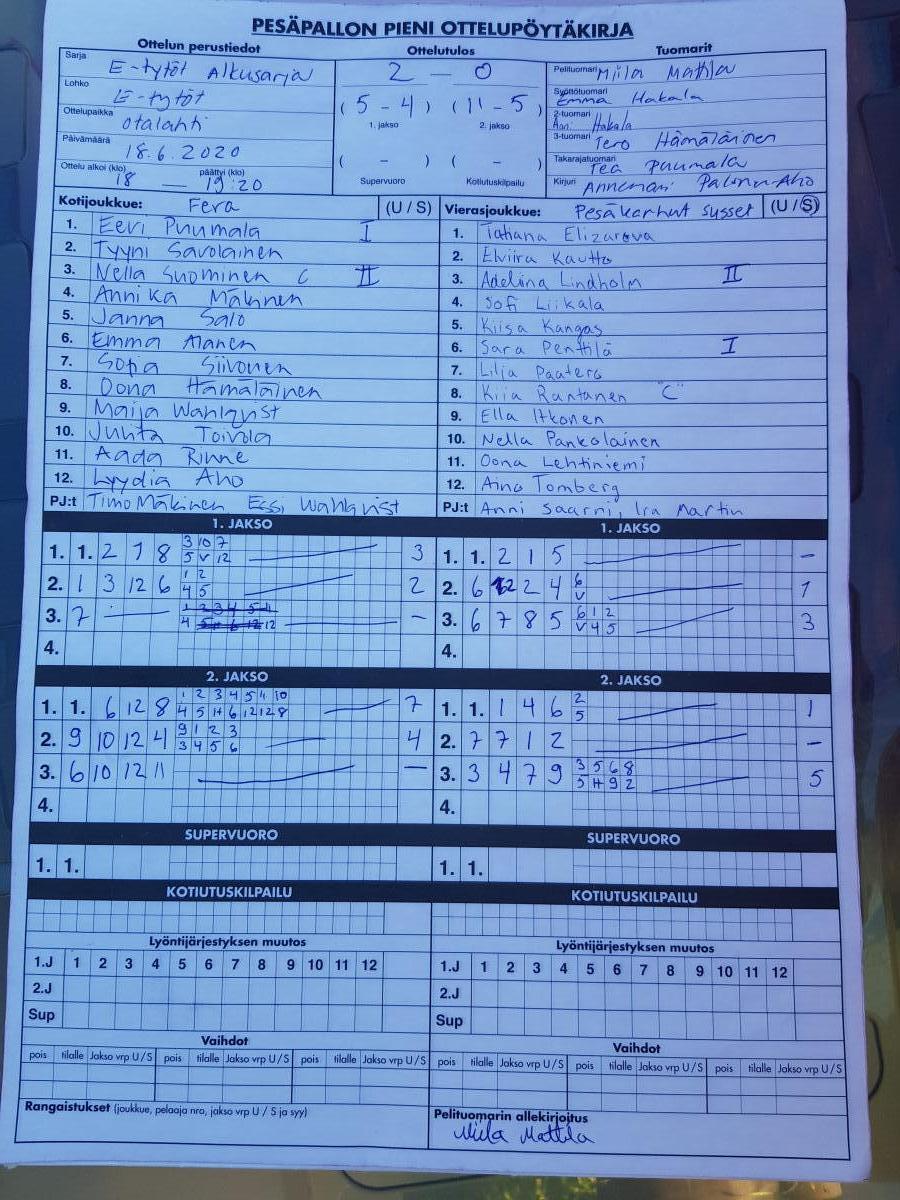 PESÄPALLON PIENI OTTELUPÖYTÄKIRJA
Ottelun perustiedot
Sarja E-tytöt Alkusarja
Lohko E-tytöt
Ottelupaikka Otalahti
Päivämäärä 18.6.2020
Ottelu alkoi (klo) 18 — päättyi (klo) 19:20
Ottelutulos
2 — 0
(5 - 4) (11 - 5)
1. jakso 2. jakso
( - ) ( - )
Supervuoro Kotiutuskilpailu
Tuomarit
Pelituomari Miila Mattila
Syöttötuomari Emma Hakala
2-tuomari Anni Hakala
3-tuomari Tero Hämäläinen
Takarajatuomari Tea Puumala
Kirjuri Annemari Palomu-Aho
Kotijoukkue: Fera (U / S)
1. Eevi Puumala I
2. Tyyni Savolainen
3. Nella Suominen C II
4. Annika Mäkinen
5. Janna Salo
6. Emma Alanen
7. Sofia Siivonen
8. Oona Hämäläinen
9. Maija Wahlqvist
10. Juhta Toivola
11. Aada Rinne
12. Lyydia Aho
PJ:t Timo Mäkinen Essi Wahlqvist
Vierasjoukkue: Pesäkarhut susset (U / S)
1. Tatiana Elizarova
2. Elviira Kautto
3. Adeliina Lindholm II
4. Sofi Liikala
5. Kiisa Kangas
6. Sara Penttilä I
7. Lilja Paatero
8. Kiia Rantanen "C"
9. Ella Itkonen
10. Nella Pankolainen
11. Oona Lehtiniemi
12. Aino Tomberg
PJ:t Anni Saarni, Ira Martin
1. JAKSO
1. 1. 2 7 8 3 10 7 3
5 V 12
2. 1 3 12 6 1 2 2
4 5
3. 7 — 1 2 3 4 5 11 —
4 5 H 6 12 12
4.
1. JAKSO
1. 1. 2 1 5 —
2. 6 12 2 4 6 1
V
3. 6 7 8 5 6 1 2 3
V 4 5
4.
2. JAKSO
1. 1. 6 12 8 1 2 3 4 5 11 10 7
4 5 H 6 12 12 8
2. 9 10 12 4 9 1 2 3 4
3 4 5 6
3. 6 10 12 11 —
4.
2. JAKSO
1. 1. 1 4 6 2 1
5
2. 7 7 1 2 —
3. 3 4 7 9 3 5 6 8 5
5 H 9 2
4.
SUPERVUORO
1. 1.
SUPERVUORO
1. 1.
KOTIUTUSKILPAILU
KOTIUTUSKILPAILU
Lyöntijärjestyksen muutos
1.J 1 2 3 4 5 6 7 8 9 10 11 12
2.J
Sup
Lyöntijärjestyksen muutos
1.J 1 2 3 4 5 6 7 8 9 10 11 12
2.J
Sup
Vaihdot
pois tilalle Jakso vrp U / S pois tilalle Jakso vrp U / S pois tilalle Jakso vrp U / S
Vaihdot
pois tilalle Jakso vrp U / S pois tilalle Jakso vrp U / S pois tilalle Jakso vrp U / S
Rangaistukset (joukkue, pelaaja nro, jakso vrp U / S ja syy)
Pelituomarin allekirjoitus
Miila Mattila